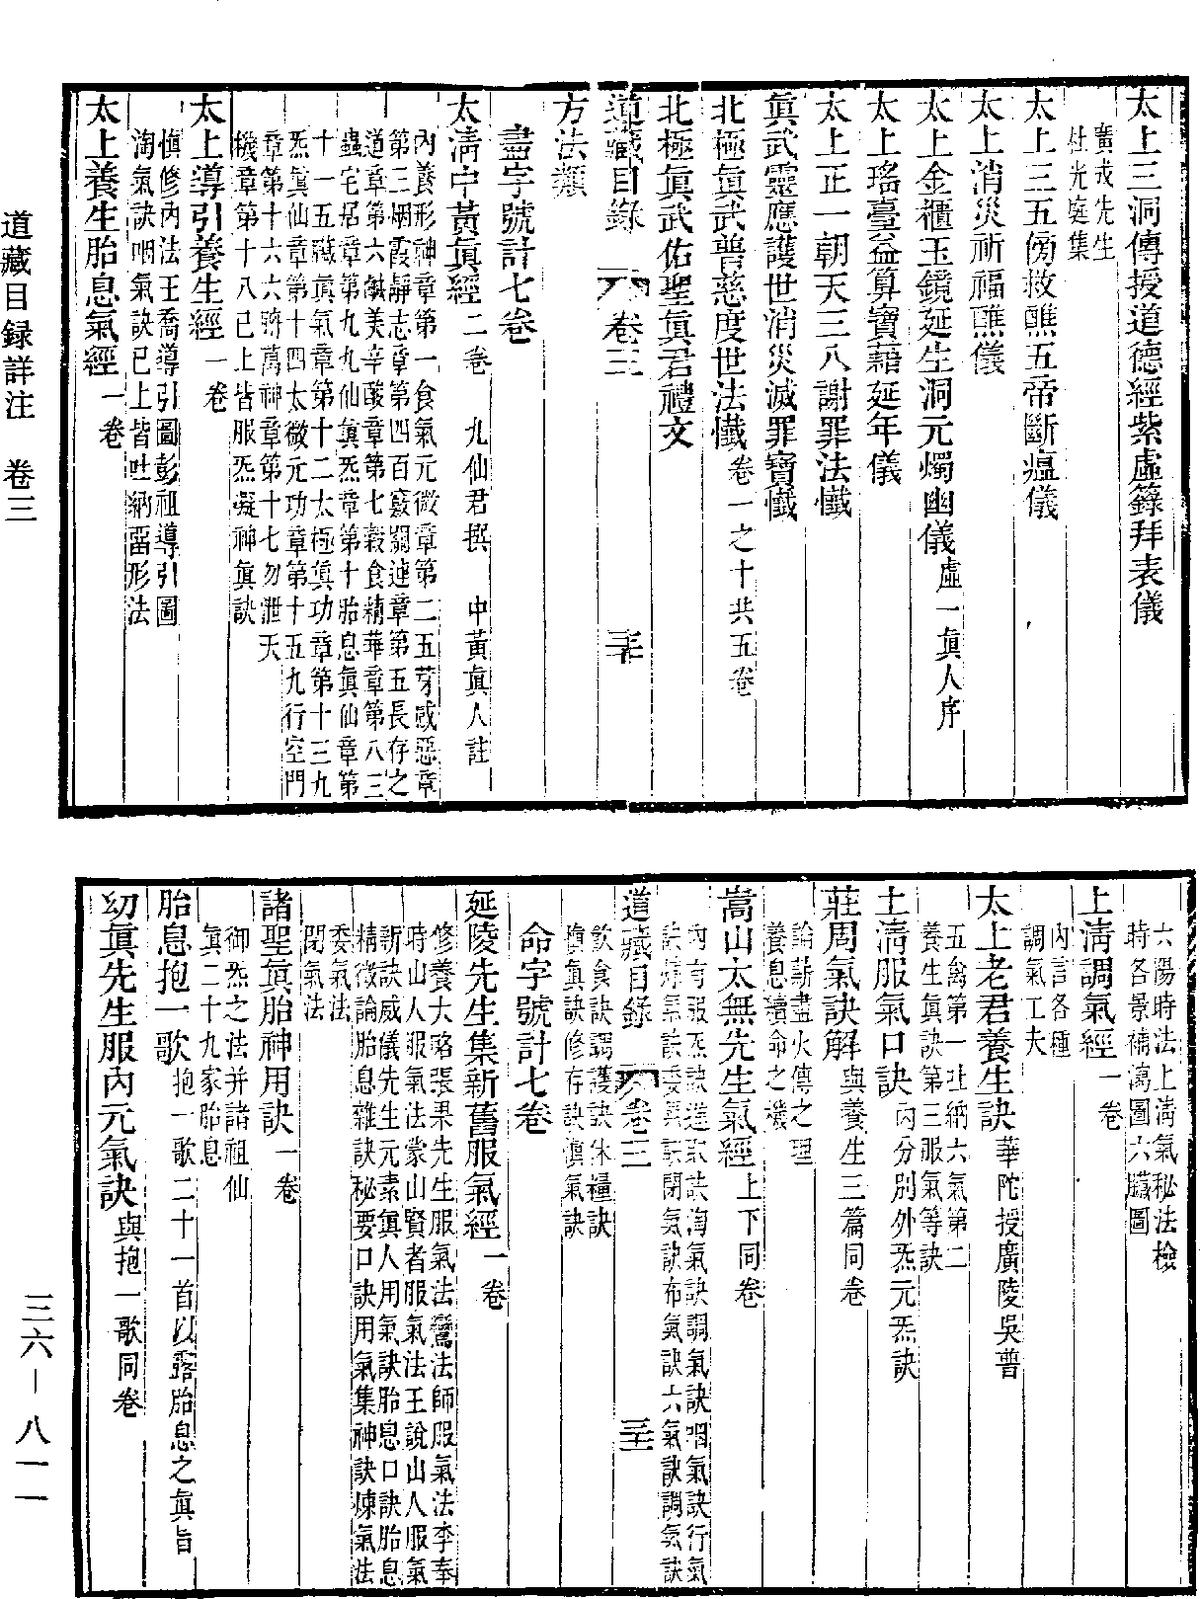 太上三洞傳授道德經紫虛籙拜表儀
廣成先生
杜光庭集
太上三五傍救醮五帝斷瘟儀
太上消災祈福醮儀
太上金櫃玉鏡延生洞元燭幽儀虛一眞人序
太上瑤臺益算寶藉延年儀
太上正一朝天三八謝罪法懺
眞武靈應護世消災滅罪寶懺
北極眞武普慈度世法懺卷一之十共五卷
北極眞武佑聖眞君禮文
道藏目錄 卷三 三十
方法類
盡字號計七卷
太淸中黃眞經二卷 九仙君撰 中黃眞人註
內養形神章第一食氣元微章第二五芽咸惡章
第三烟霞靜志章第四百竅關連章第五長存之
道章第六鹹美辛酸章第七穀食精華章第八三
蟲宅居章第九九仙眞炁章第十胎息眞仙章第
十一五臟眞氣章第十二太極眞功章第十三九
炁眞仙章第十四太微元功章第十五九行空門
章第十六六時萬神章第十七勿泄天
機章第十八已上皆服炁凝神眞訣
太上導引養生經一卷
愼修內法王喬導引圖彭祖導引圖
淘氣訣咽氣訣已上皆吐納畱形法
太上養生胎息氣經一卷
道藏目録詳注 卷三
六陽時法上淸氣秘法檢
時各景補瀉圖六臟圖
上淸調氣經一卷
內言各種
調氣工夫
太上老君養生訣華陀授廣陵吳普
五禽第一吐納六氣第二
養生眞訣第三服氣等訣
上淸服氣口訣內分別外炁元炁訣
莊周氣訣解與養生三篇同卷
論薪盡火傳之理
養息續命之機
嵩山太無先生氣經上下同卷
內有服炁訣進取訣淘氣訣調氣訣咽氣訣行氣
訣煉氣訣委氣訣閉氣訣布氣訣六氣訣調氣訣
道藏目錄 卷三 三十一
飲食訣調護訣休糧訣
愼眞訣修存訣愼氣訣
命字號計七卷
延陵先生集新舊服氣經一卷
修養大略張果先生服氣法鸞法師服氣法李奉
時山人服氣法蒙山賢者服氣法王說山人服氣
新訣威儀先生元素眞人用氣訣胎息口訣胎息
精微論胎息雜訣秘要口訣用氣集神訣煉氣法
委氣法
閉氣法
諸聖眞胎神用訣一卷
御炁之法并諸祖仙
眞二十九家胎息
胎息抱一歌抱一歌二十一首以露胎息之眞旨
幼眞先生服內元氣訣與抱一歌同卷
三六－八一一